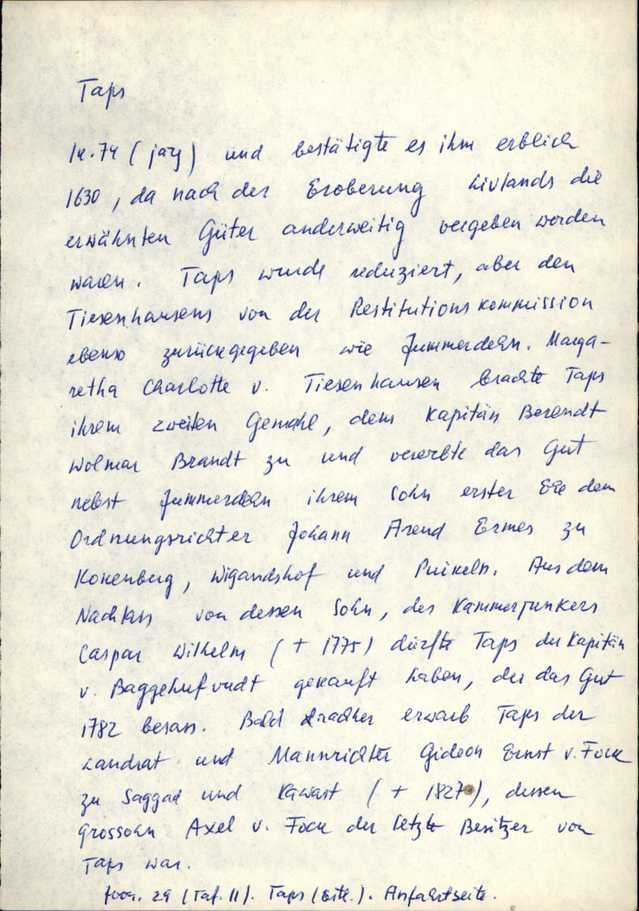 Taps
14.74 (järg) und bestätigte es ihm erblich
1630, da nach der Eroberung Livlands die
erwähnten Güter anderweitig vergeben worden
waren. Taps wurde reduziert, aber den
Tiesenhausens von der Restitutionskommission
ebenso zurückgegeben wie Jummerdehn. Marga-
retha Charlotte v. Tiesenhausen brachte Taps
ihrem zweiten Gemahl, dem Kapitän Berendt
Wolmar Brandt zu und vererbte das Gut
nebst Jummerdehn ihrem Sohn erster Ehe dem
Ordnungsrichter Johann Arend Ermes zu
Kokenberg, Wigandshof und Puikeln. Aus dem
Nachlass von dessen Sohn, des Kammerjunkers
Caspar Wilhelm († 1775) dürfte Taps der Kapitän
v. Baggehufvudt gekauft haben, der das Gut
1782 besass. Bald erwarb Taps der
Landrat und Mannrichter Gideon Ernst v. Fock
zu Saggad und Kawast († 1827), dessen
Grossohn Axel v. Fock der letzte Besitzer von
Taps war.
29 (Taf. 11). Taps (Estl.). Anfahrtseite.